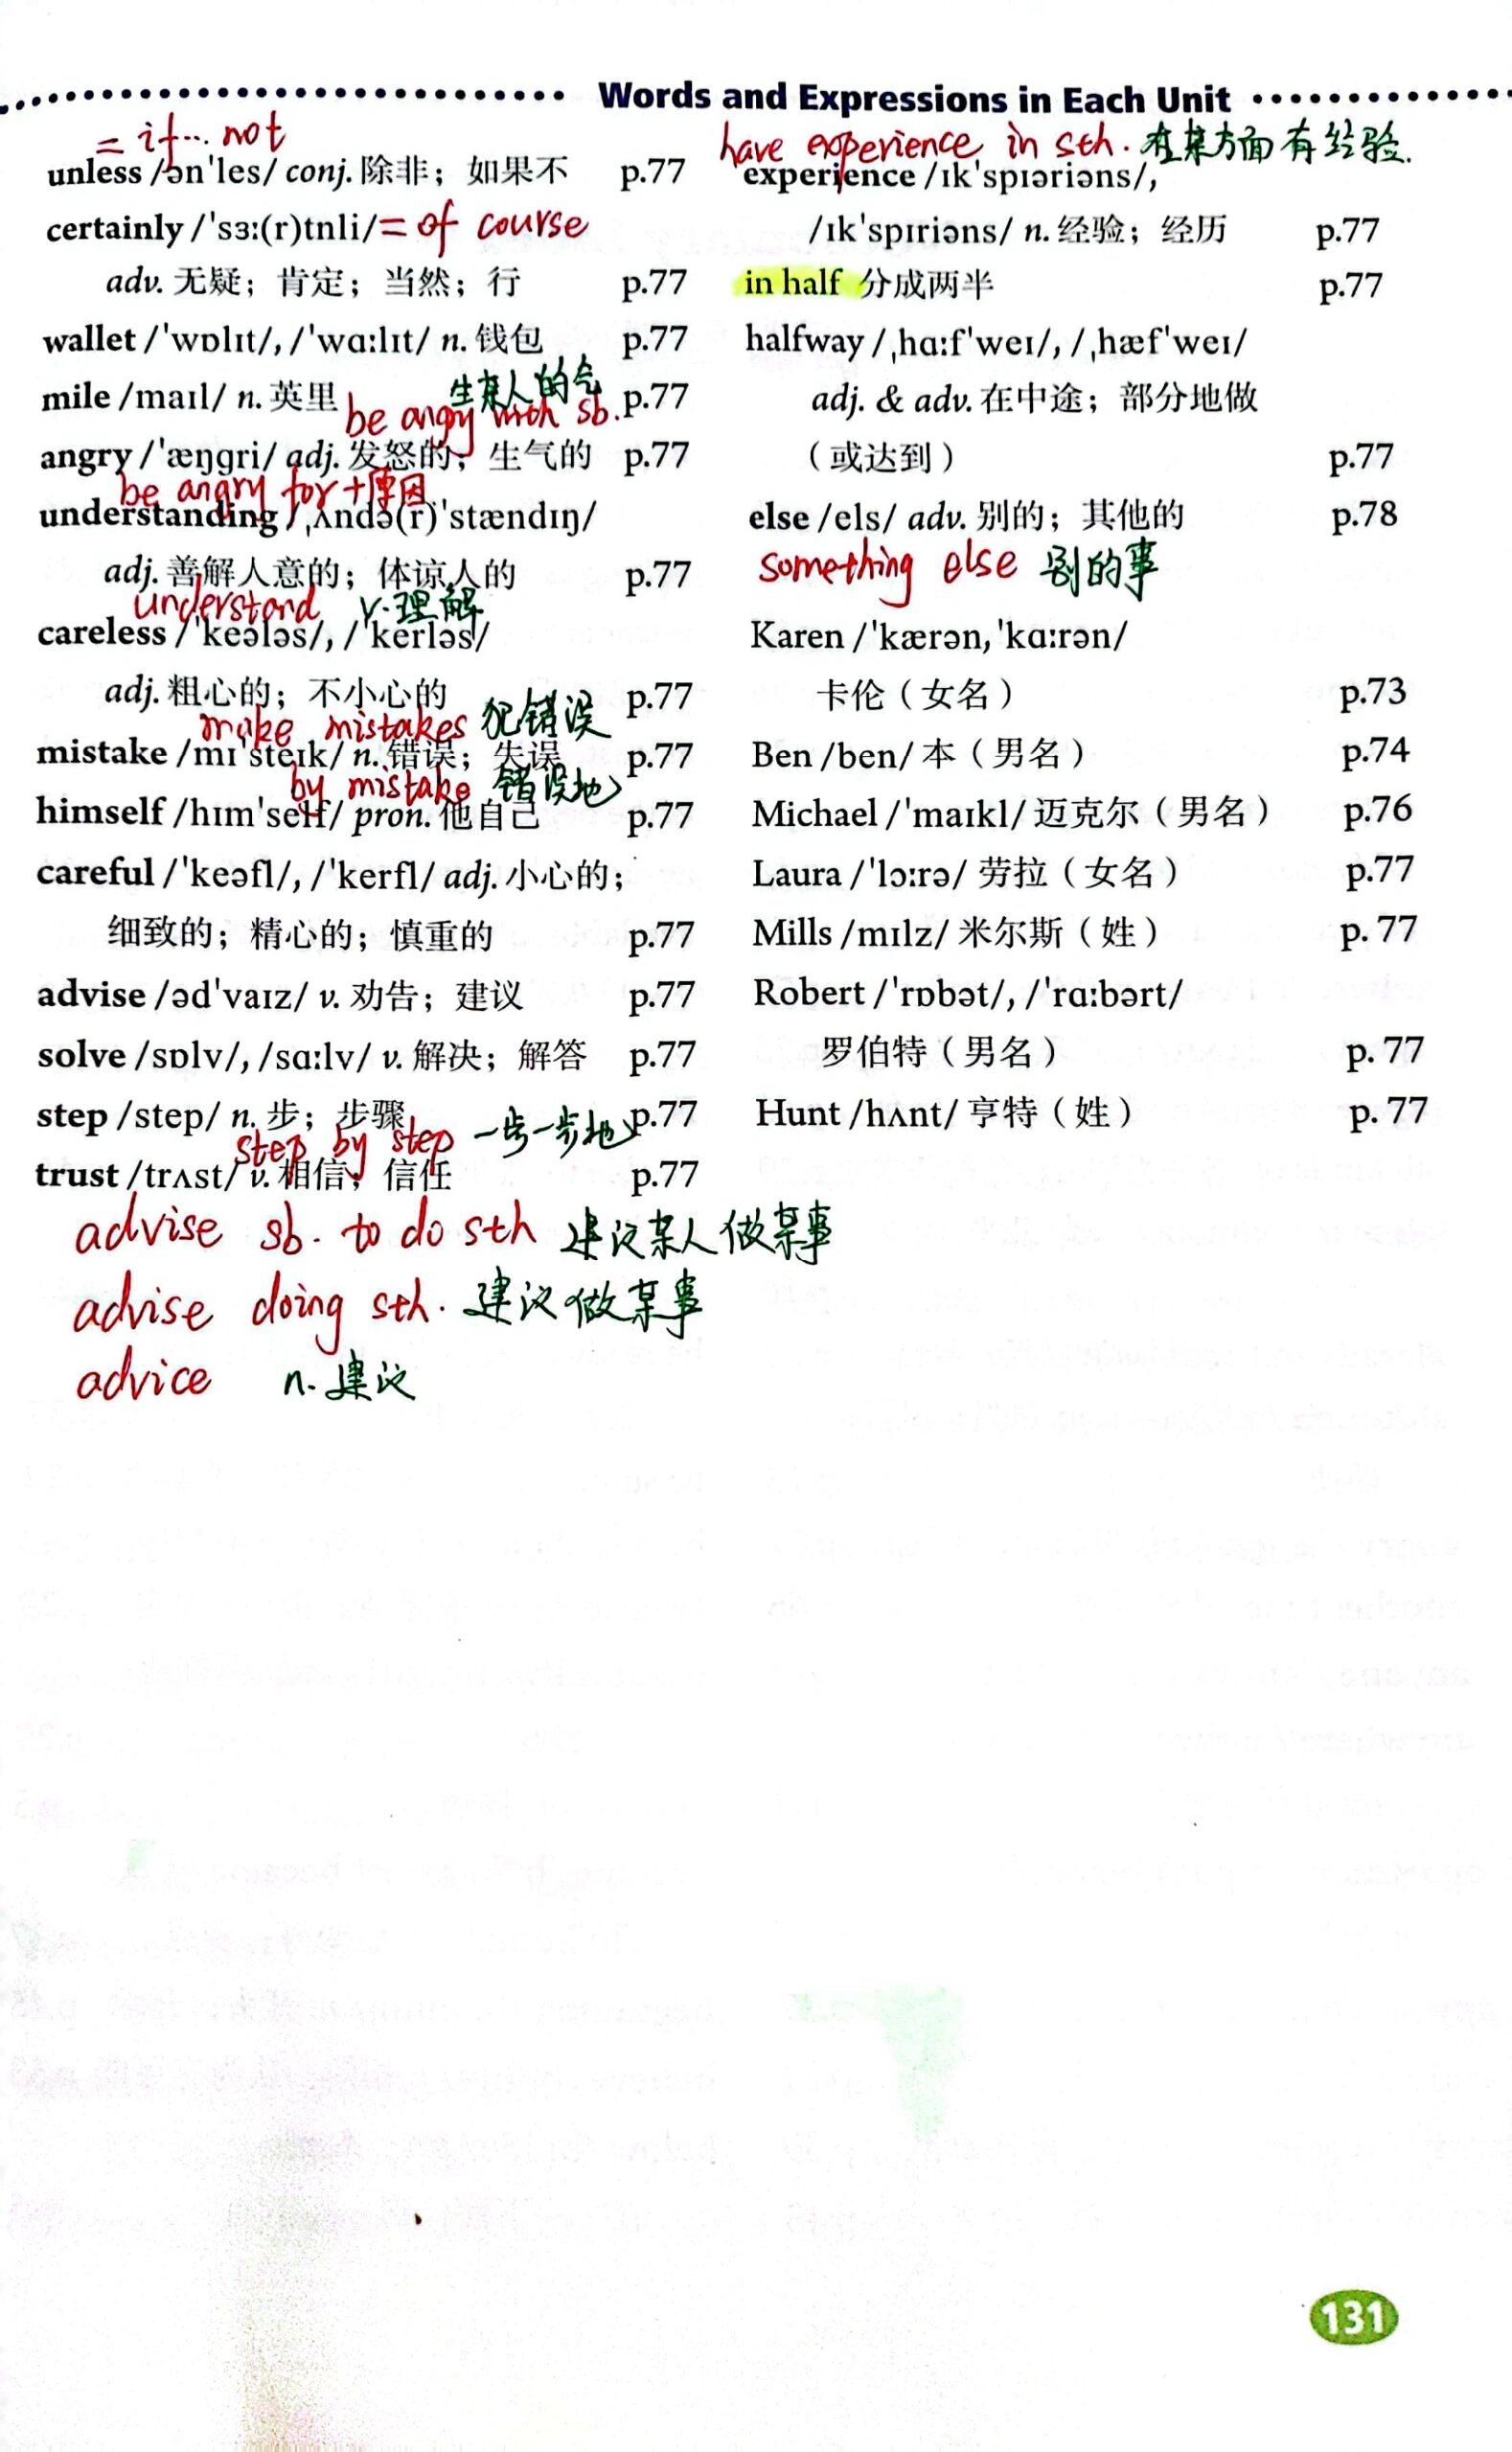 Words and Expressions in Each Unit
= if... not
unless /ən'les/ conj. 除非；如果不 p.77
certainly /'sɜː(r)tnli/ = of course
adv. 无疑；肯定；当然；行 p.77
wallet /'wɒlɪt/, /'wɑːlɪt/ n. 钱包 p.77
mile /maɪl/ n. 英里 p.77
生某人的气
be angry with sb.
angry /'æŋgri/ adj. 发怒的；生气的 p.77
be angry for + 原因
understanding /ˌʌndə(r)'stændɪŋ/
adj. 善解人意的；体谅人的 p.77
understand v. 理解
careless /'keələs/, /'kerləs/
adj. 粗心的；不小心的 p.77
make mistakes 犯错误
mistake /mɪ'steɪk/ n. 错误；失误 p.77
by mistake 错误地
himself /hɪm'self/ pron. 他自己 p.77
careful /'keəfl/, /'kerfl/ adj. 小心的；
细致的；精心的；慎重的 p.77
advise /əd'vaɪz/ v. 劝告；建议 p.77
solve /sɒlv/, /sɑːlv/ v. 解决；解答 p.77
step /step/ n. 步；步骤 p.77
step by step 一步一步地
trust /trʌst/ v. 相信；信任 p.77
advise sb. to do sth 建议某人做某事
advise doing sth. 建议做某事
advice n. 建议
have experience in sth. 在某方面有经验.
experience /ɪk'spɪəriəns/,
/ɪk'spɪriəns/ n. 经验；经历 p.77
in half 分成两半 p.77
halfway /ˌhɑːf'weɪ/, /ˌhæf'weɪ/
adj. & adv. 在中途；部分地做
（或达到） p.77
else /els/ adv. 别的；其他的 p.78
something else 别的事
Karen /'kærən, 'kɑːrən/
卡伦（女名） p.73
Ben /ben/ 本（男名） p.74
Michael /'maɪkl/ 迈克尔（男名） p.76
Laura /'lɔːrə/ 劳拉（女名） p.77
Mills /mɪlz/ 米尔斯（姓） p. 77
Robert /'rɒbət/, /'rɑːbərt/
罗伯特（男名） p. 77
Hunt /hʌnt/ 亨特（姓） p. 77
131